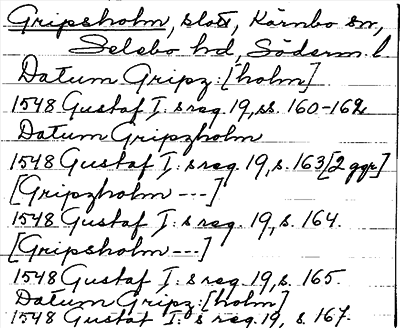 Gripsholm, slott, Kärnbo sn,
Selebo hd, Söderm. l
Datum Gripz: [holm]
1548 Gustaf I: s reg. 19, ss. 160-162
Datum Gripzholm
1548 Gustaf I: s reg. 19, s. 163 [2 ggr]
[Gripzholm ---]
1548 Gustaf I: s reg. 19, s. 164.
[Gripsholm ---]
1548 Gustaf I: s reg. 19, s. 165.
Datum Gripz: [holm]
1548 Gustaf I: s reg. 19, s. 167.